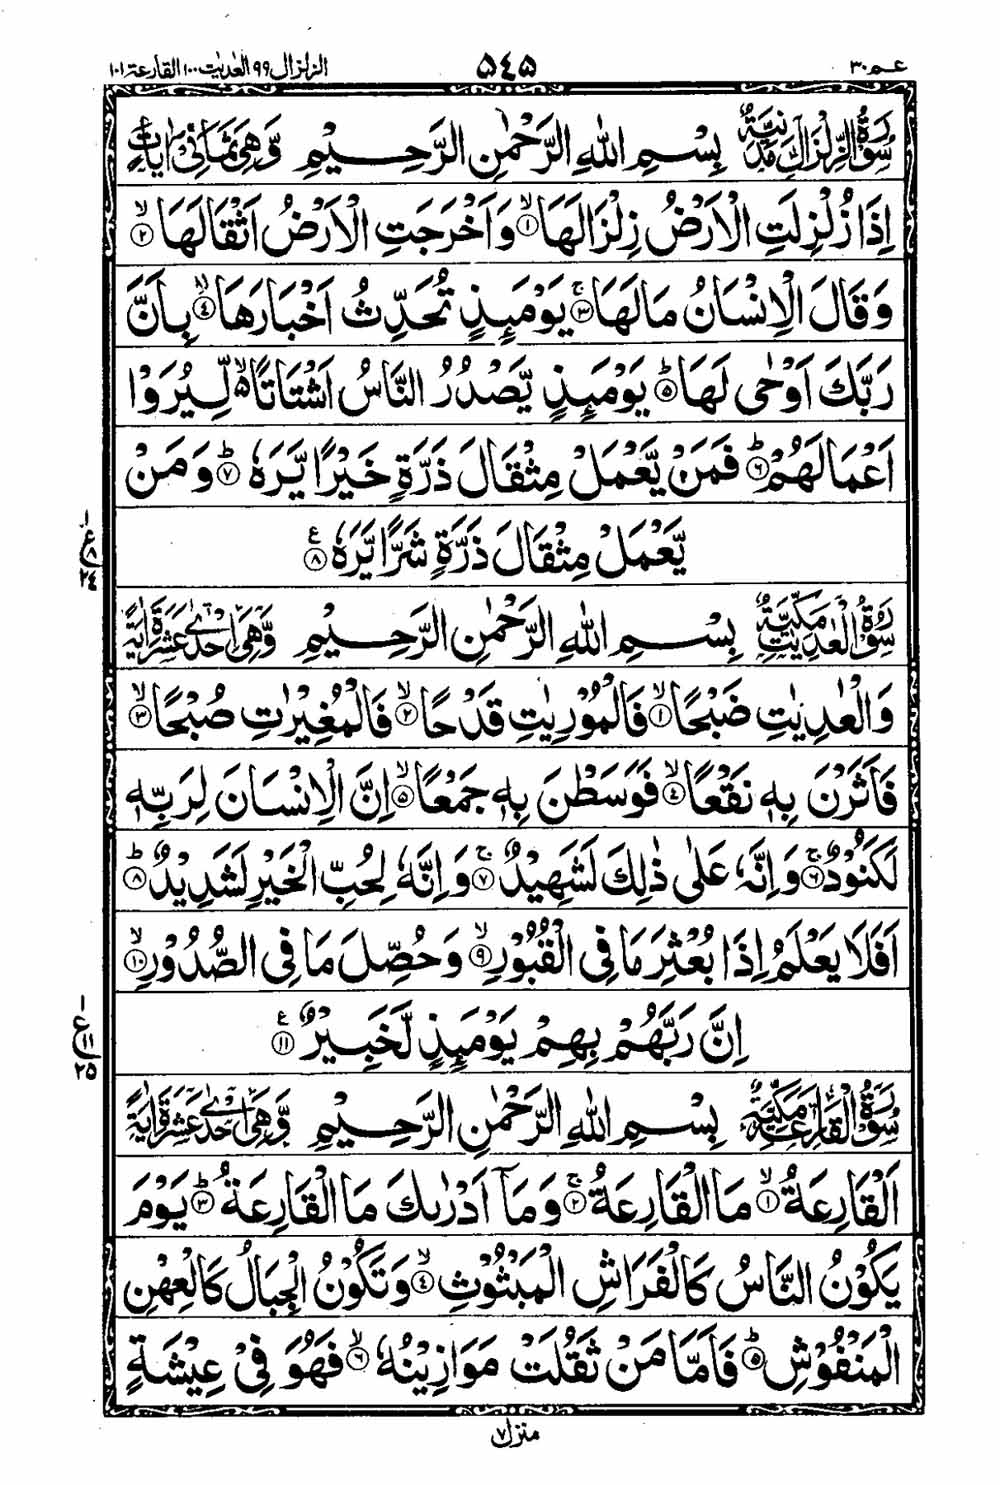 عـم ٣٠
۵٤۵
الزلزال ٩٩ العٰدیٰت ١٠٠ القارعة ١٠١
سُوْرَةُ الزِّلْزَالِ مَدَنِيَّةٌ بِسْمِ اللهِ الرَّحْمٰنِ الرَّحِيْمِ وَّهِيَ ثَمَانِيْ اٰيَاتٍ
اِذَا زُلْزِلَتِ الْاَرْضُ زِلْزَالَهَا ۙ﴿١﴾ وَاَخْرَجَتِ الْاَرْضُ اَثْقَالَهَا ۙ﴿٢﴾
وَقَالَ الْاِنْسَانُ مَا لَهَا ۚ﴿٣﴾ يَوْمَئِذٍ تُحَدِّثُ اَخْبَارَهَا ۙ﴿٤﴾ بِاَنَّ
رَبَّكَ اَوْحٰى لَهَا ؕ﴿۵﴾ يَوْمَئِذٍ يَّصْدُرُ النَّاسُ اَشْتَاتًا ۙ۵ لِّيُرَوْا
اَعْمَالَهُمْ ؕ﴿٦﴾ فَمَنْ يَّعْمَلْ مِثْقَالَ ذَرَّةٍ خَيْرًا يَّرَهٗ ؕ﴿٧﴾ وَمَنْ
يَّعْمَلْ مِثْقَالَ ذَرَّةٍ شَرًّا يَّرَهٗ ﴿٨﴾ ع
١
ع ٨
٢٤
سُوْرَةُ الْعٰدِيٰتِ مَكِّيَّةٌ بِسْمِ اللهِ الرَّحْمٰنِ الرَّحِيْمِ وَّهِيَ اِحْدٰى عَشْرَةَ اٰيَةً
وَالْعٰدِيٰتِ ضَبْحًا ۙ﴿١﴾ فَالْمُوْرِيٰتِ قَدْحًا ۙ﴿٢﴾ فَالْمُغِيْرٰتِ صُبْحًا ۙ﴿٣﴾
فَاَثَرْنَ بِهٖ نَقْعًا ۙ﴿٤﴾ فَوَسَطْنَ بِهٖ جَمْعًا ۙ﴿۵﴾ اِنَّ الْاِنْسَانَ لِرَبِّهٖ
لَكَنُوْدٌ ۚ﴿٦﴾ وَاِنَّهٗ عَلٰى ذٰلِكَ لَشَهِيْدٌ ۚ﴿٧﴾ وَاِنَّهٗ لِحُبِّ الْخَيْرِ لَشَدِيْدٌ ؕ﴿٨﴾
اَفَلَا يَعْلَمُ اِذَا بُعْثِرَ مَا فِى الْقُبُوْرِ ۙ﴿٩﴾ وَحُصِّلَ مَا فِى الصُّدُوْرِ ۙ﴿١٠﴾
اِنَّ رَبَّهُمْ بِهِمْ يَوْمَئِذٍ لَّخَبِيْرٌ ﴿١١﴾ ع
١
ع ١١
٢۵
سُوْرَةُ الْقَارِعَةِ مَكِّيَّةٌ بِسْمِ اللهِ الرَّحْمٰنِ الرَّحِيْمِ وَّهِيَ اِحْدٰى عَشْرَةَ اٰيَةً
اَلْقَارِعَةُ ۙ﴿١﴾ مَا الْقَارِعَةُ ۚ﴿٢﴾ وَمَاۤ اَدْرٰىكَ مَا الْقَارِعَةُ ؕ﴿٣﴾ يَوْمَ
يَكُوْنُ النَّاسُ كَالْفَرَاشِ الْمَبْثُوْثِ ۙ﴿٤﴾ وَتَكُوْنُ الْجِبَالُ كَالْعِهْنِ
الْمَنْفُوْشِ ؕ﴿۵﴾ فَاَمَّا مَنْ ثَقُلَتْ مَوَازِيْنُهٗ ۙ﴿٦﴾ فَهُوَ فِيْ عِيْشَةٍ
منزل ٧